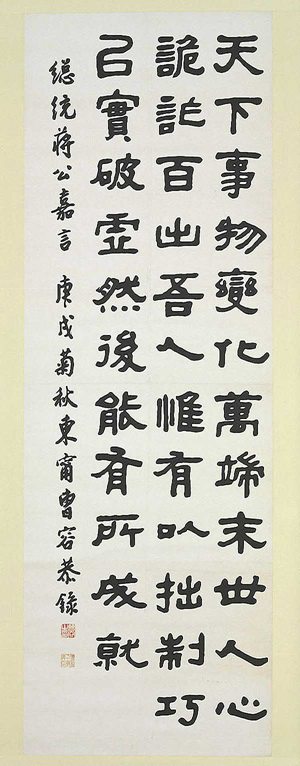 天下事物變化萬端末世人心
詭詐百出吾人惟有以拙制巧
㠯實破虛然後能有所成就
總統蔣公嘉言 庚戌菊秋東甯曹容恭錄